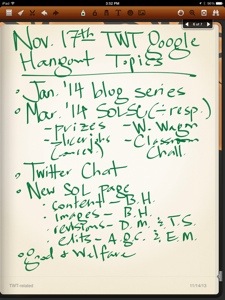 iPad
3:52 PM
6 of 7
Nov. 17th TWT Google
Hangout Topics
• Jan. '14 blog series
• Mar. '14 SOLSC (÷ resp.)
- prizes - W. Wagm
- Classroom
Chall.
• Twitter Chat
• New SOL page
- content - B.H.
- images - B.H.
- revisions - D.M. & T.S.
- edits - A.G.C. & E.M.
• Good & Welfare
TWT-related
11/14/13